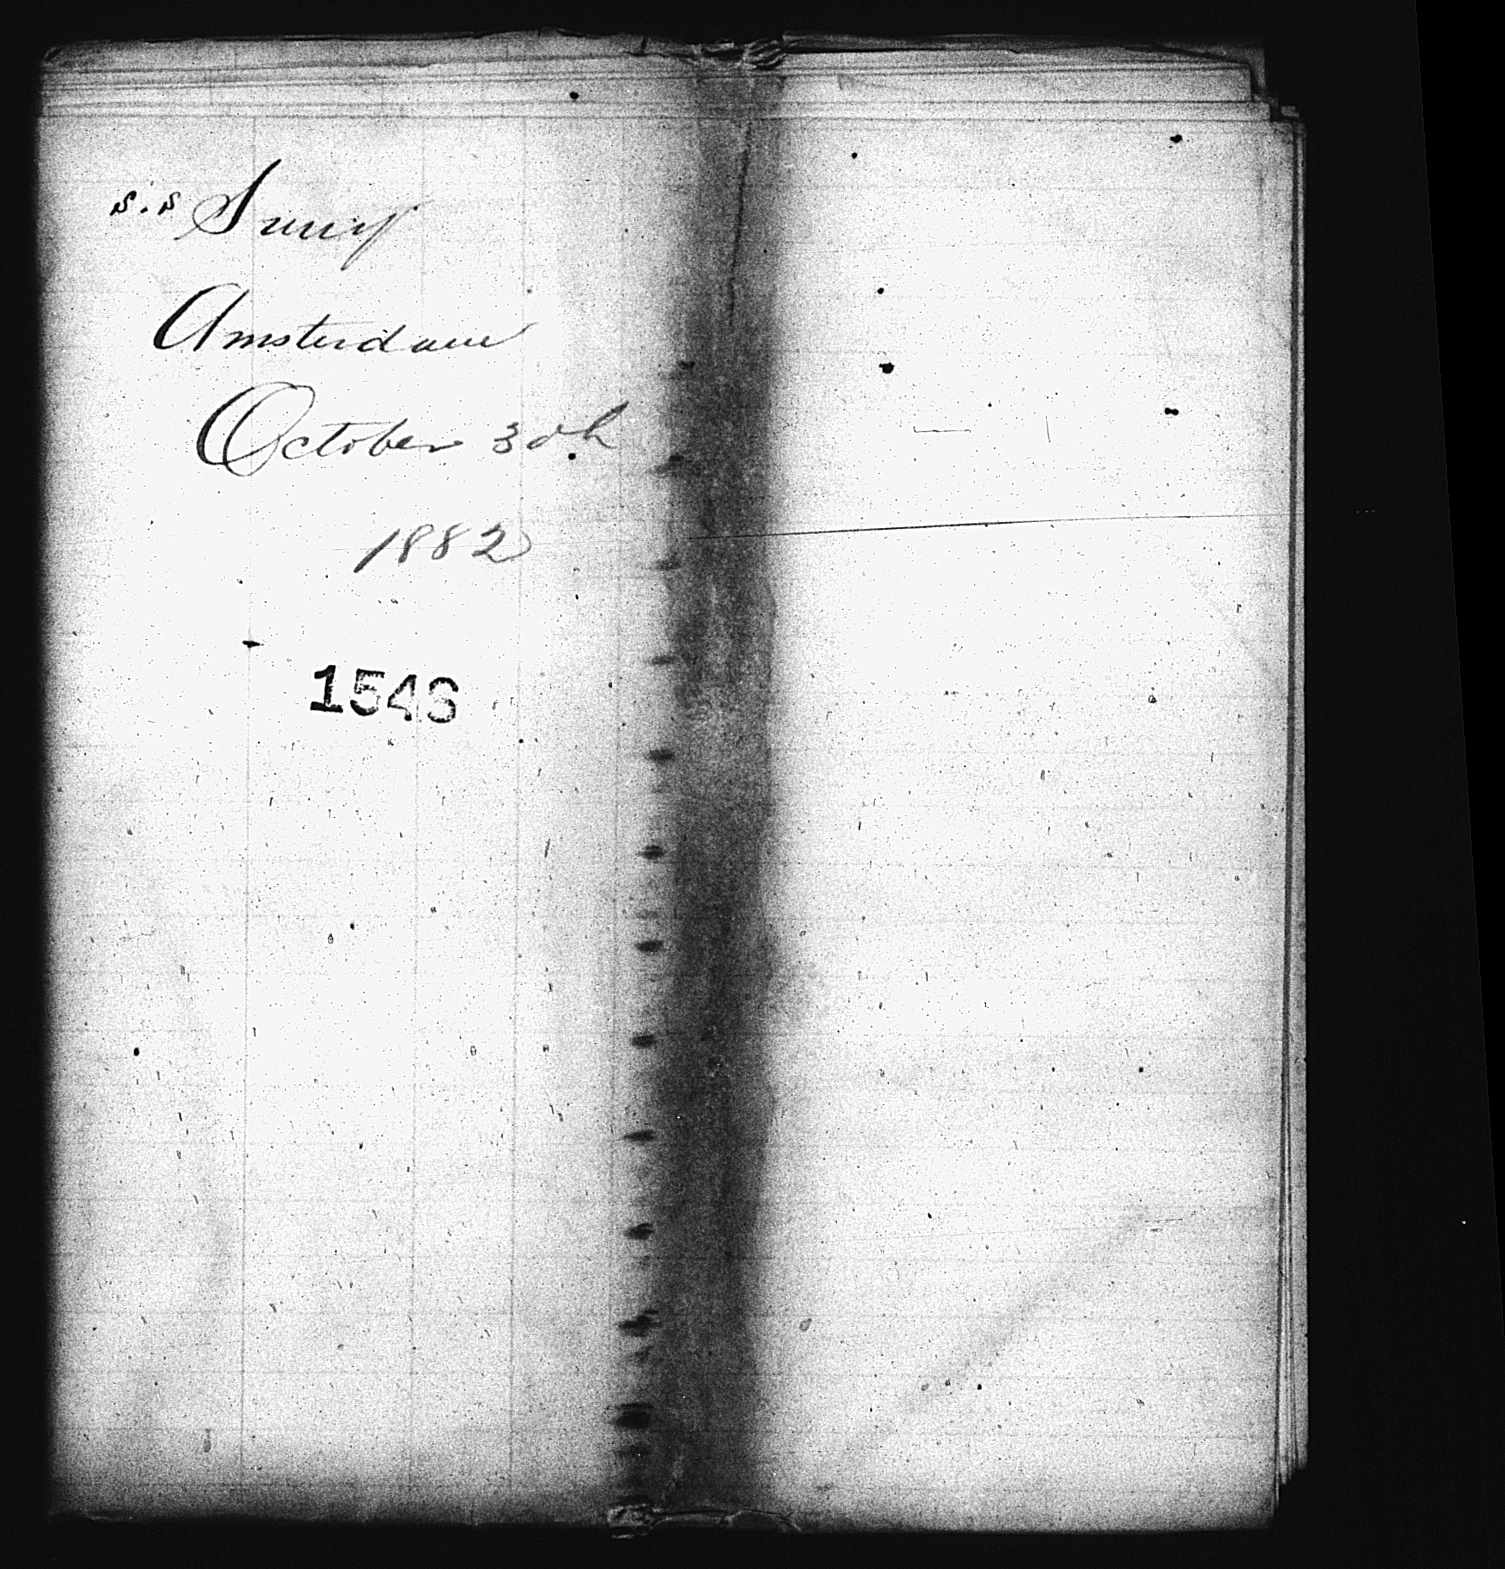 S.S Surry
Amsterdam
October 30th
1882